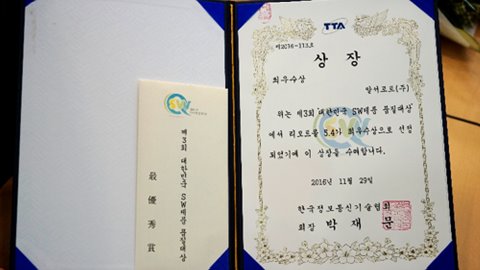 TTA
제2016-113호
상 장
최우수상
알서포트(주)
위는 제3회 대한민국 SW제품 품질대상
에서 리모트콜 5.4가 최우수상으로 선정
되었기에 이 상장을 수여합니다.
2016년 11월 29일
한국정보통신기술협회
회장 박 재 문
SW
제3회 대한민국 SW제품 품질대상
最優秀賞